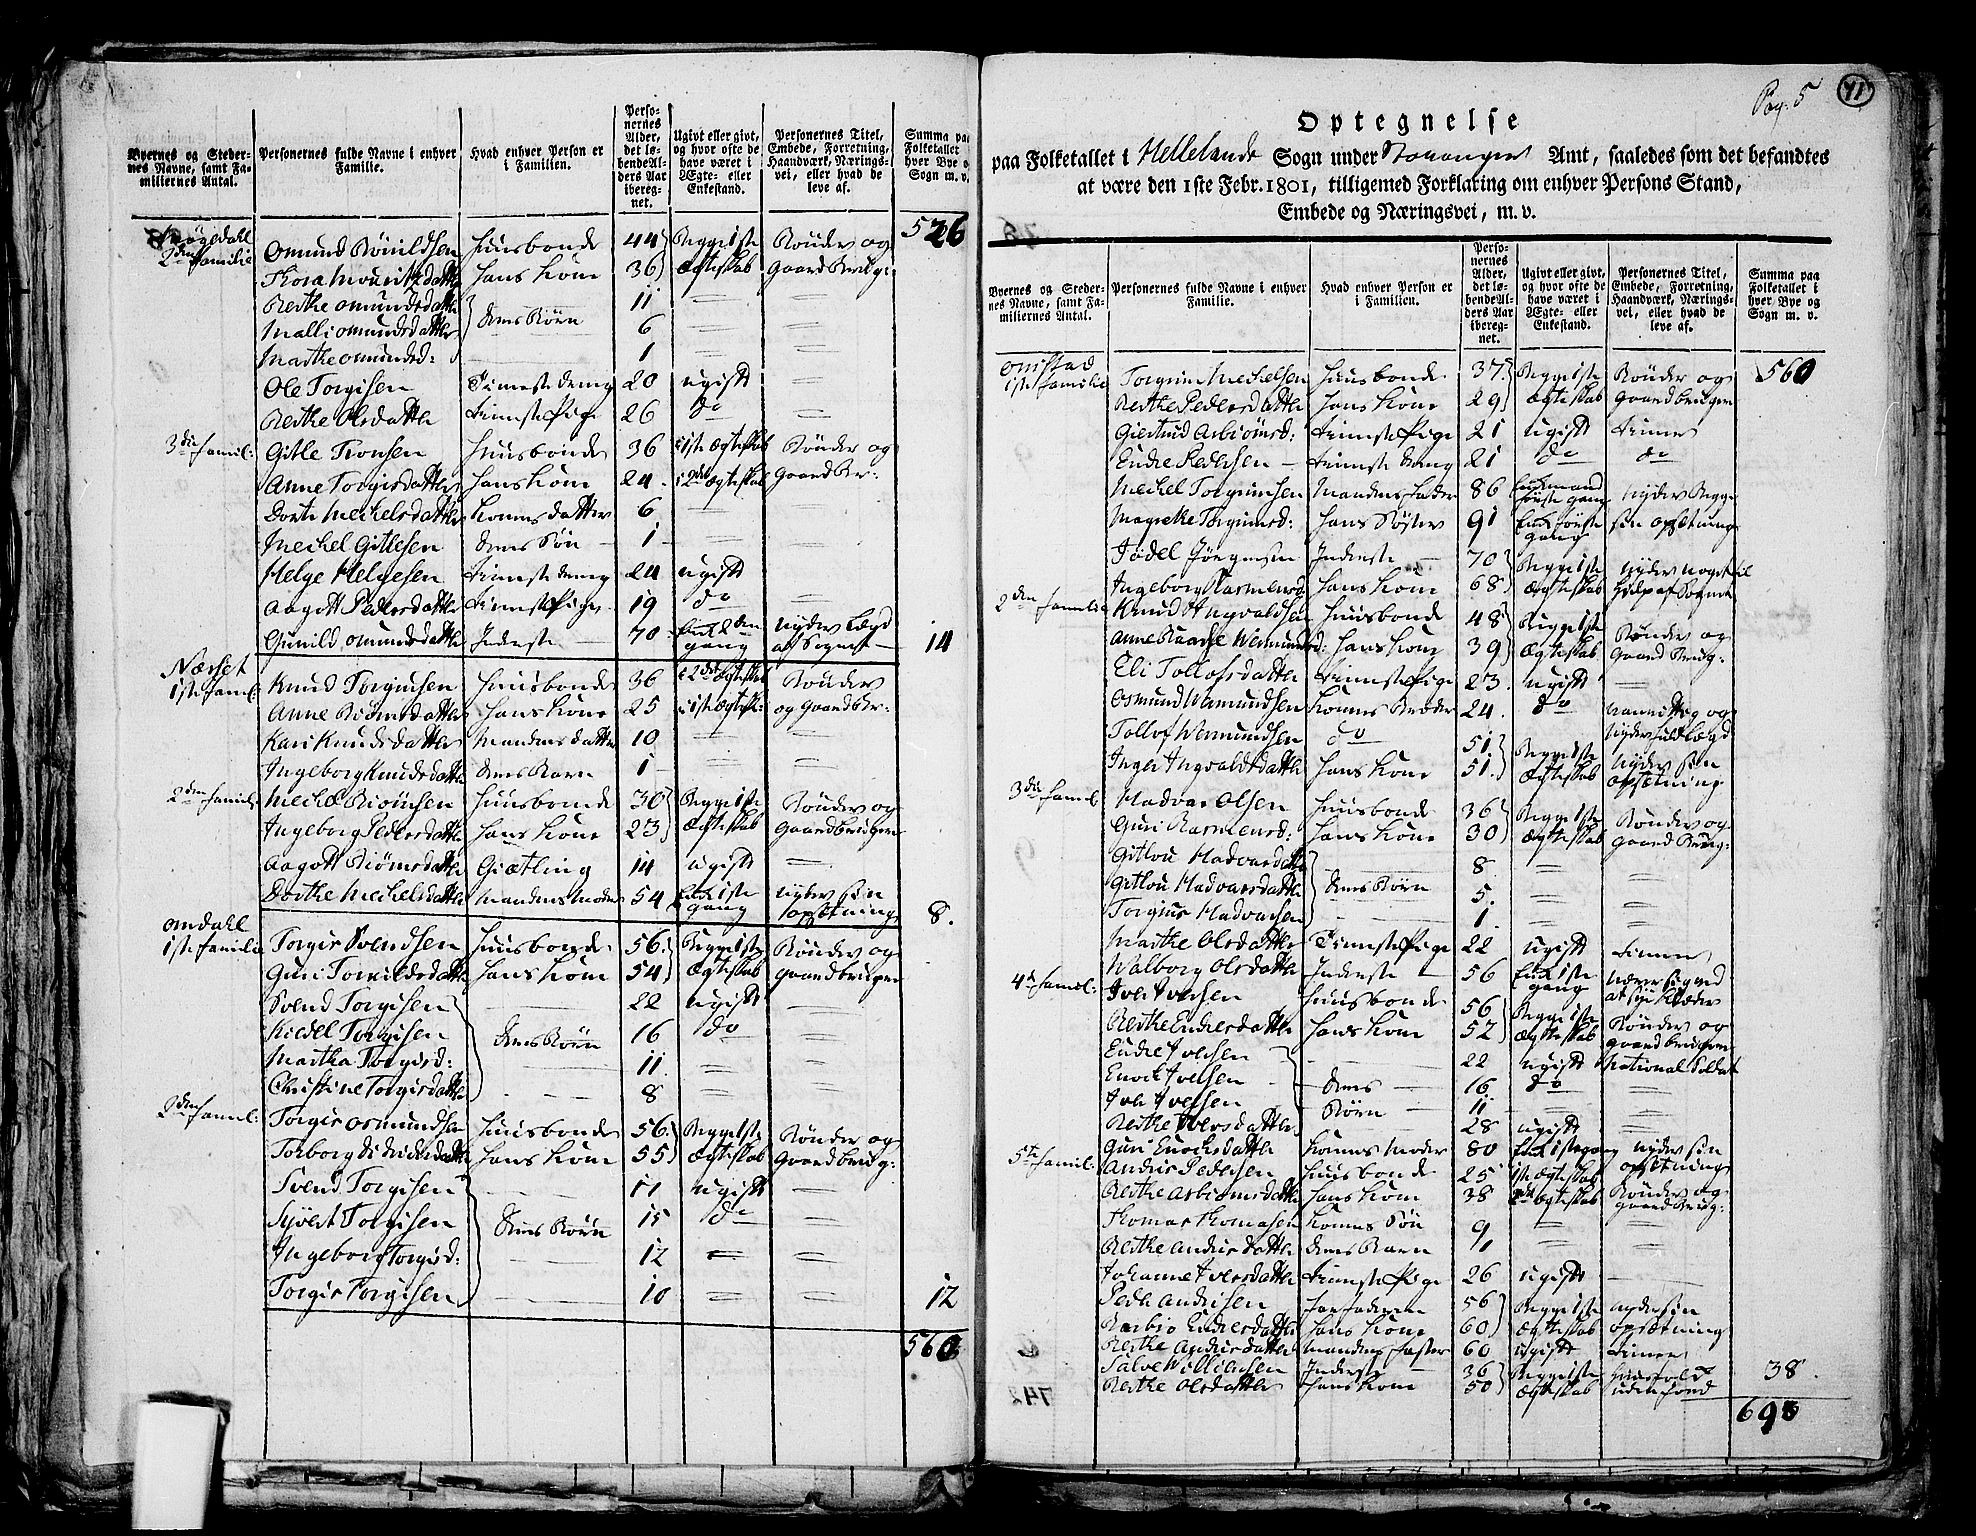 Byernes og Steder-
nes Navne, samt Fa-
miliernes Antal.
Personernes fulde Navne i enhver
Familie.
Hvad enhver Person er
i Familien.
Perso-
nernes
Alder,
det lø-
bende Al-
ders Aar
ibereg-
net.
Ugivt eller givt,
og hvor ofte de
have været i
Ægte- eller
Enkestand.
Personernes Titel,
Embede, Forretning,
Haandværk, Nærings-
vei, eller hvad de
leve af.
Summa paa
Folketallet i
hver Bye og
Sogn m. v.
526
2den Familie Osmund Rönildsen Huusbonde 44 Begge 1ste Bönder og
hans Kone 36 Ægteskab Gaard Brug:
Berthe Omundsdatter 11
Malli Omundsdatter deres Börn 6
Marthe Omundsd: 1
Ole Torgisen Tieneste dreng 20 ugift
Berthe Olsdatter tieneste Pige 26 do
3die Famil: Gitle Tronsen Huusbonde 36 1ste Ægteskab Bönder og
Anne Torgisdatter hans Kone 24 2det Ægteskab Gaard Br:
Dorte Meckelsdatter Konens datter 6
Meckel Gitlesen deres Sön 1
Helge Helgesen tieneste dreng 24 ugift
Aagott Pedersdatter tieneste Pige 19 do
Gunild Omundsdatter Inderste 70 Enke 2den gang nyder Lægd af Sognet 14
Næset
1ste Famil: Knud Torgiusen Huusbonde 36 2det Ægteskab Bönder
Anne Biörnsdatter hans Kone 25 1ste Ægtesk: og Gaard Br:
Kari Knudsdatter Mandens datter 10
Ingeborg Knudsdatter deres Barn 1
2den Famil: Meckel Biörnsen Huusbonde 30 Begge 1ste Bönder og
Ingeborg Pedersdatter hans Kone 23 Ægteskab Gaardbrugere
Aagott Biörnsdatter Giætling 14 ugift
Dorthe Meckelsdatter Mandens Moder 54 Enke 1ste gang nyder sin opsætning 8.
Omdahl
1ste Familie Torgis Svendsen Huusbonde 56 Begge 1ste Bönder og
Guri Torkildsdatter hans Kone 54 Ægteskab Gaardbrugere
Svend Torgisen 22 ugift
Kiedel Torgisen deres Börn 16 do
Martha Torgisd: 11
Christine Torgisdatter 8
2den Famil: Torgis Osmundsen Huusbonde 56 Begge 1ste Bönder og
Torborg Didricksdatter hans Kone 55 Ægteskab Gaardbrug:
Svend Torgisen 17 ugift
Sivert Torgisen deres Börn 15 do
Ingeborg Torgisd: 12
Torgis Torgisen 10 12
560
Pag: 5 71
Optegnelse
paa Folketallet i Hellelands Sogn under Stavangers Amt, saaledes som det befandtes
at være den 1ste Febr. 1801, tilligemed Forklaring om enhver Persons Stand,
Embede og Næringsvei, m. v.
Byernes og Steder-
nes Navne, samt Fa-
miliernes Antal.
Personernes fulde Navne i enhver
Familie.
Hvad enhver Person er
i Familien.
Perso-
nernes
Alder,
det lø-
bende Al-
ders Aar
ibereg-
net.
Ugivt eller givt,
og hvor ofte de
have været i
Ægte- eller
Enkestand.
Personernes Titel,
Embede, Forretning,
Haandværk, Nærings-
vei, eller hvad de
leve af.
Summa paa
Folketallet i
hver Bye og
Sogn m. v.
Omstad 560
1ste Familie Torgrim Meckelsen Huusbonde 37 Begge 1ste Bönder og
Berthe Pedersdatter hans Kone 29 Ægteskab Gaardbrugere
Giertrud Asbiörnsd: tieneste Pige 21 ugift tiener
Endre Pedersen tieneste dreng 21 do do
Meckel Torgrimsen Mandens Fader 86 Enkemand förste gang nyder Begge
Magrethe Torgrimsd: hans Söster 91 Enke förste gang sin opsætning
Jödel Jörgensen Inderste 70 Begge 1ste nyder noget til
Ingeborg Rasmusd: hans Kone 68 Ægteskab Hielp af Sognet
2den Familie Knud Ingvaldsen Huusbonde 48 Begge 1ste Bönder og
Anne Wermundsd: hans Kone 39 Ægteskab Gaard Brug:
Eli Tollofsdatter tieneste Pige 23 ugift
Osmund Wermundsen Konens Broder 24 do vanvittig og
Tollof Wermundsen do 51 Begge 1ste nyder sin
Inger Ingvaldsdatter hans Kone 51 Ægteskab opsætning
3die Famil: Hadvar Olsen Huusbonde 36 Begge 1ste Bönder og
Guri Rasmusd: hans Kone 30 Ægteskab Gaard Brug:
Gitlou Hadvarsdatter 8
Gitlou Hadvarsdatter deres Börn 5
Torgius Hadvarsen 1
Marthe Olsdatter Tieneste Pige 22 ugift tiener
Walborg Olsdatter Inderste 56 Enke 1ste gang
4de Famil: Iver Iversen Huusbonde 56 Begge 1ste Bönder og
Berthe Endresdatter hans Kone 52 Ægteskab Gaardbrugere
Endre Iversen 22 ugift National Soldat
Enock Iversen deres 16 do
Iver Iversen Börn 11
Berthe Iversdatter 28 ugift
Guri Enocksdatter Konens Moder 80 Enke 1ste gang nyder sin opsætning
5te Famil: Andris Pedersen Huusbonde 25 1ste Ægteskab
Berthe Asbiörnsdatter hans Kone 38 2det Ægteskab Bönder og Gaard Brug:
Thomas Thomasen Konens Sön 9
Berthe Andrisdatter deres Barn 1
Johanne Iversdatter tieneste Pige 26 ugift
Peder Andrisen 56 Begge 1ste nyder sin
Endresdatter hans Kone 60 Ægteskab opsætning
Berthe Andrisdatter Mandens Faster 60 ugift tiener
Salve Willumsen Inderste 36 Begge 1ste
Berthe Olsdatter hans Kone 50 Ægteskab 38
698